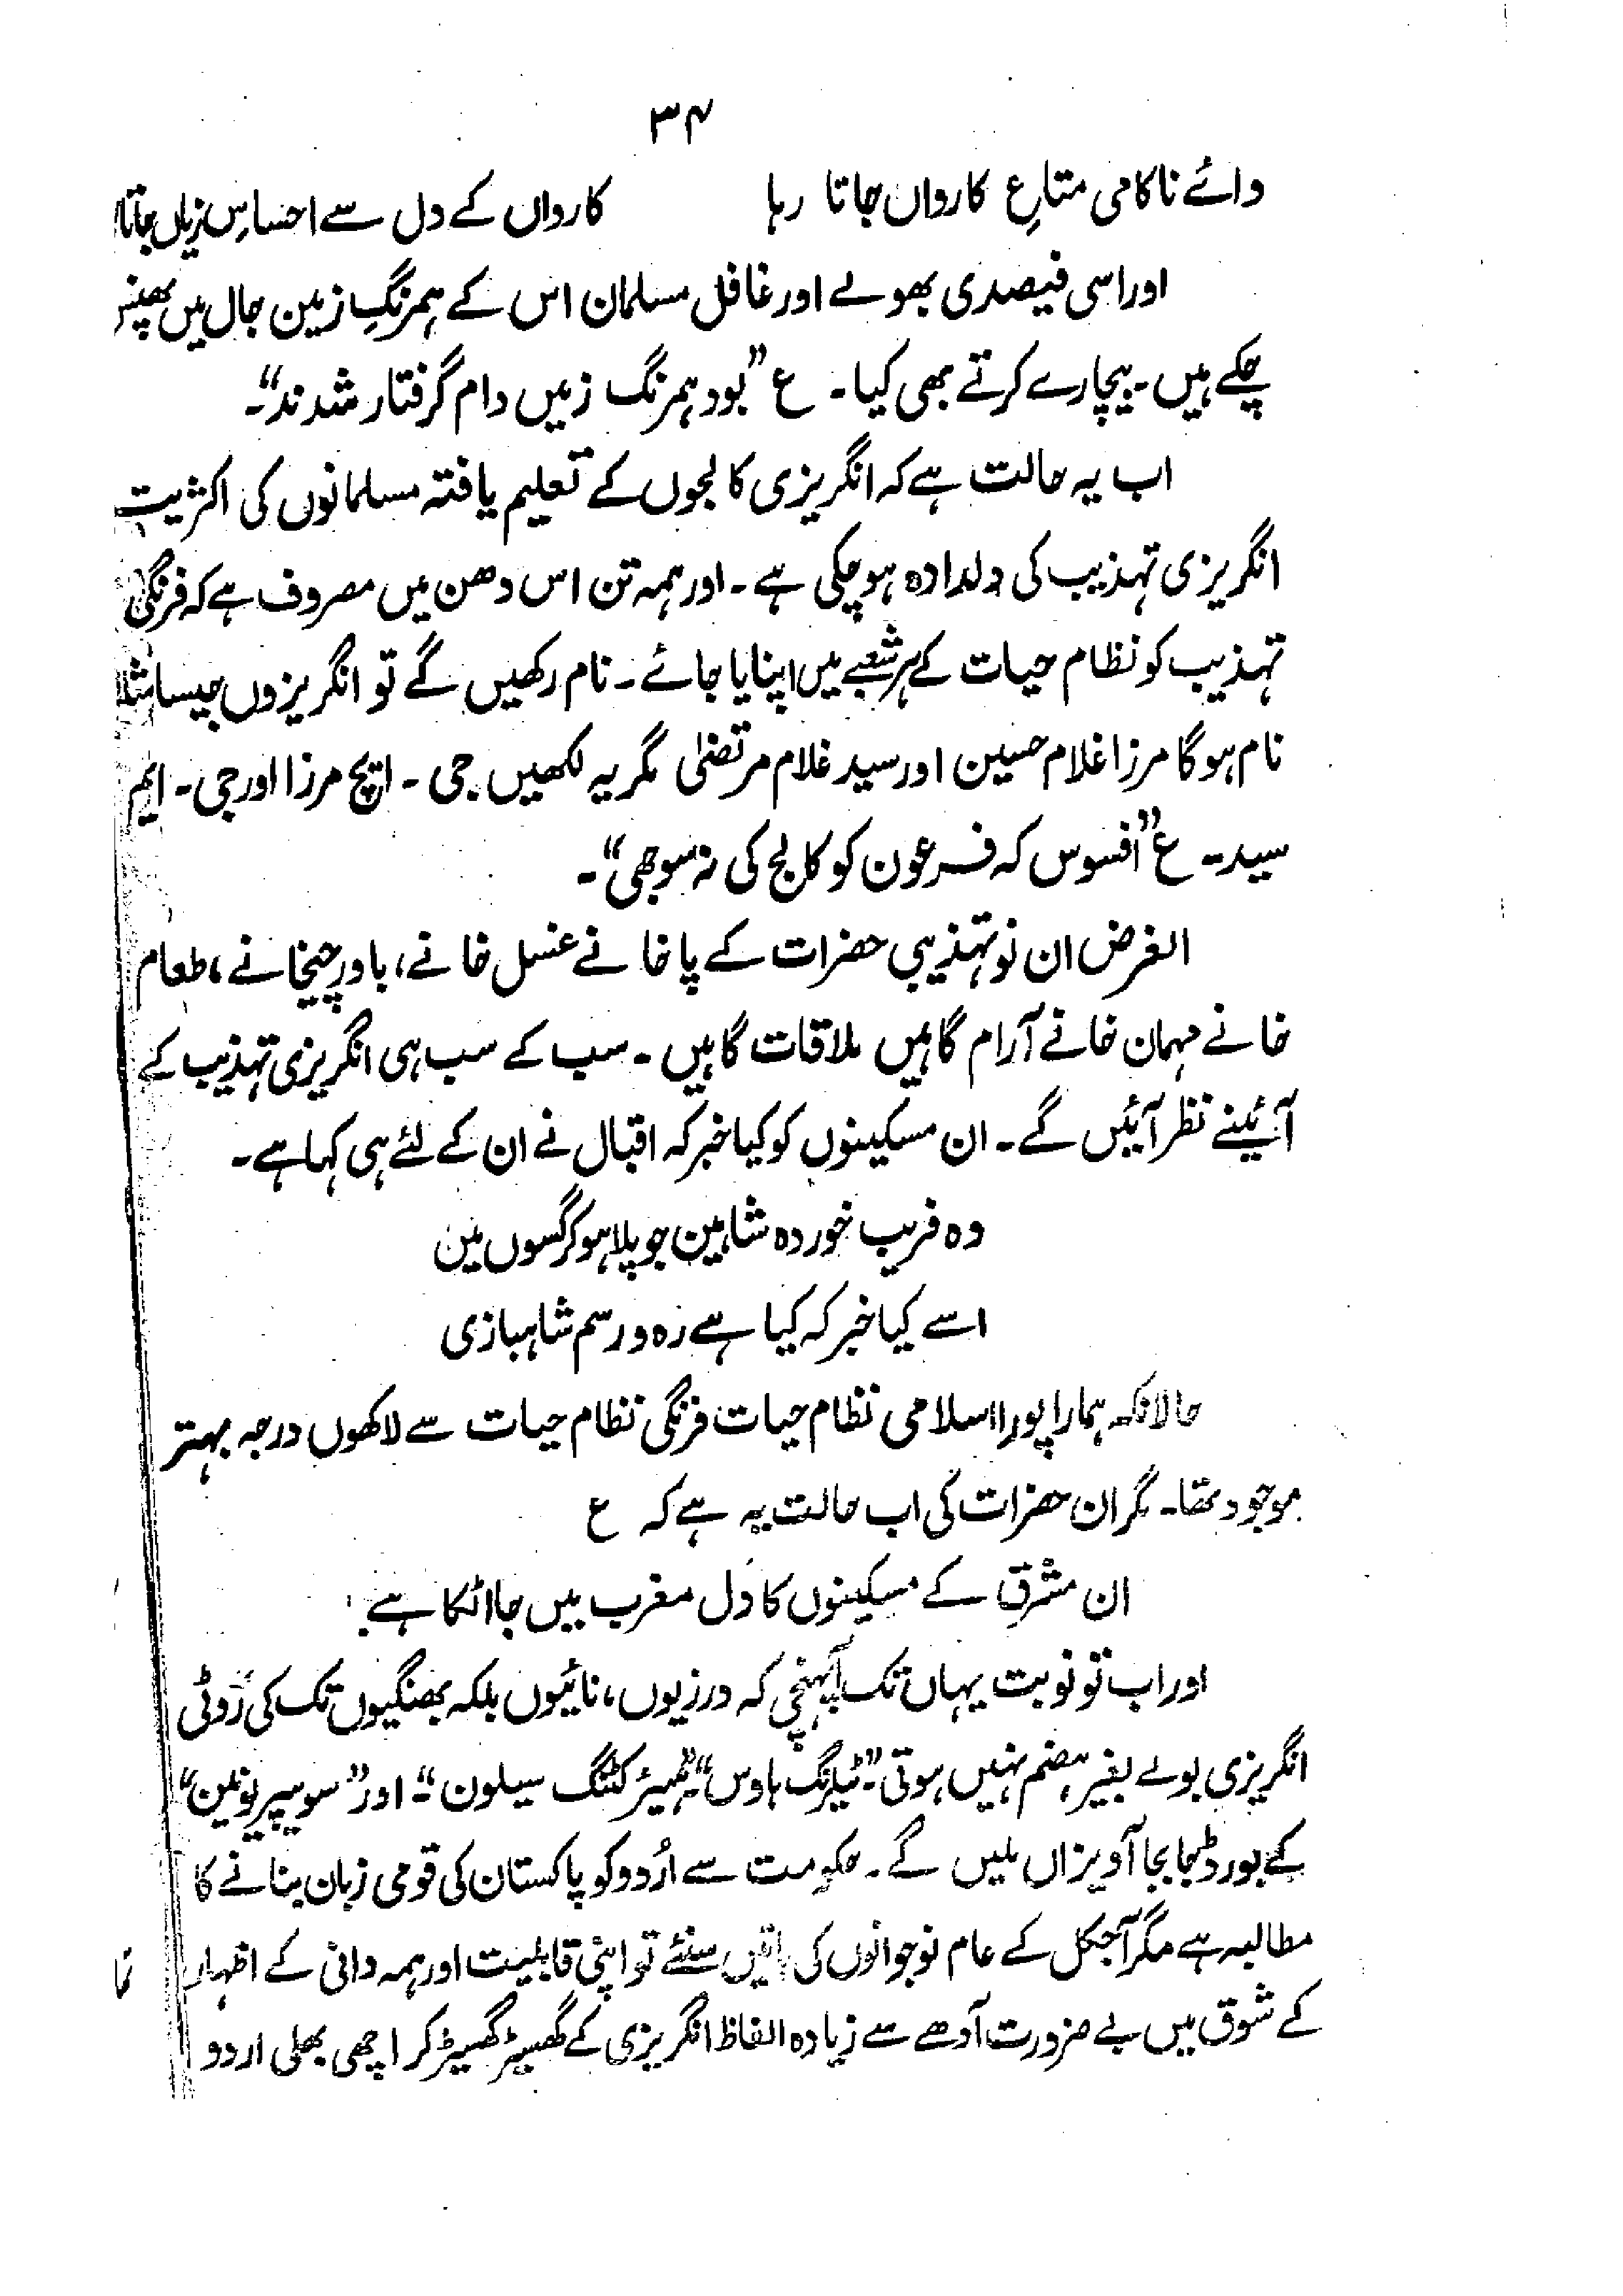 ۳۴
وائے ناکامی متاعِ کارواں جاتا رہا کارواں کے دل سے احساسِ زیاں جاتا
اور اسی فیصدی بھولے اور غافل مسلمان اس کے ہمرنگِ زمین جال میں پھنس
چکے ہیں۔ بیچارے کرتے بھی کیا۔ ع "بود ہمرنگ زمیں دام گرفتار شدند"۔
اب یہ حالت ہے کہ انگریزی کالجوں کے تعلیم یافتہ مسلمانوں کی اکثریت
انگریزی تہذیب کی دلدادہ ہو چکی ہے۔ اور ہمہ تن اس دھن میں مصروف ہے کہ فرنگی
تہذیب کو نظام حیات کے ہر شعبے میں اپنایا جائے۔ نام رکھیں گے تو انگریزوں جیسا مثلاً
نام ہوگا مرزا غلام حسین اور سید غلام مرتضیٰ مگر یہ لکھیں جی۔ ایچ مرزا اور جی۔ ایم
سید۔ ع "افسوس کہ فرعون کو کالج کی نہ سوجھی"۔
الغرض ان نو تہذیبی حضرات کے پاخانے غسل خانے، باورچیخانے، طعام
خانے مہمان خانے آرام گاہیں ملاقات گاہیں۔ سب کے سب ہی انگریزی تہذیب کے
آئینے نظر آئیں گے۔ ان مسکینوں کو کیا خبر کہ اقبال نے ان کے لئے ہی کہا ہے۔
وہ فریب خوردہ شاہین جو پلا ہو کرگسوں میں
اسے کیا خبر کہ کیا ہے رہ و رسم شاہبازی
حالانکہ ہمارا پورا اسلامی نظام حیات فرنگی نظام حیات سے لاکھوں درجہ بہتر
موجود تھا۔ مگر ان حضرات کی اب حالت یہ ہے کہ ع
ان مشرق کے مسکینوں کا دل مغرب میں جا اٹکا ہے
اور اب تو نوبت یہاں تک آ پہنچی کہ درزیوں، نائیوں بلکہ بھنگیوں تک کی روٹی
انگریزی بولے بغیر ہضم نہیں ہوتی۔ "ٹیلرنگ ہاوس" "ہیئر کٹنگ سیلون"۔ اور "سویپر یونین"
کے بورڈ جا بجا آویزاں ملیں گے۔ حکومت سے اُردو کو پاکستان کی قومی زبان بنانے کا
مطالبہ ہے مگر آجکل کے عام نوجوانوں کی باتیں سنئے تو اپنی قابلیت اور ہمہ دانی کے اظہار
کے شوق میں بے ضرورت آدھے سے زیادہ الفاظ انگریزی کے گھسیڑ گھسیڑ کر اچھی بھلی اردو